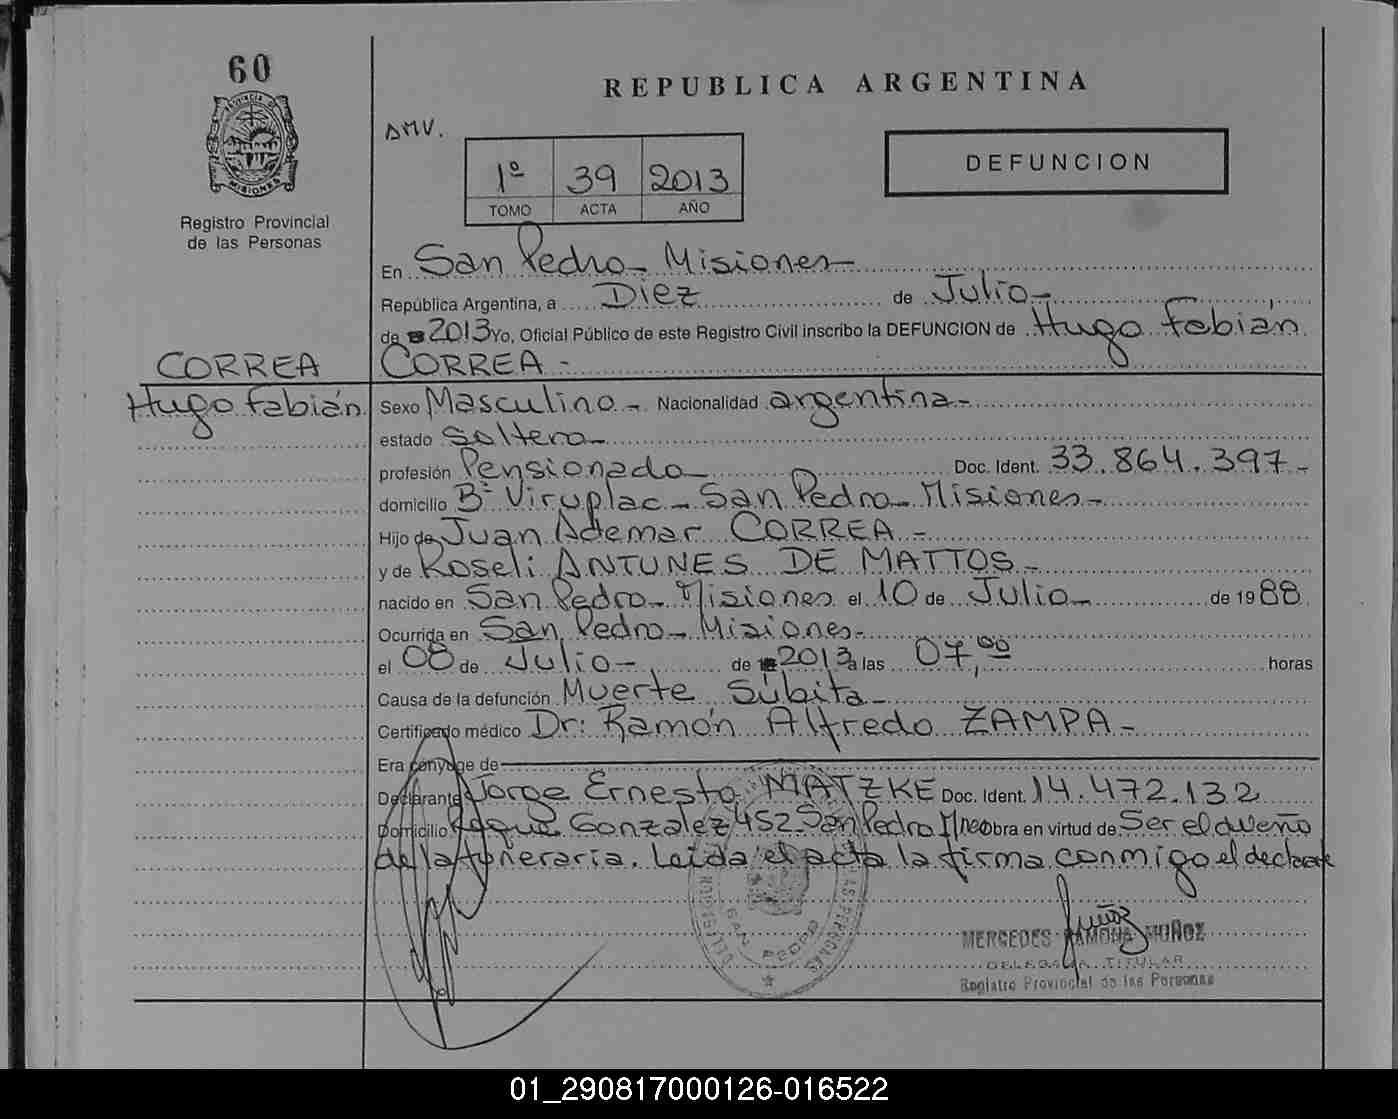 60
PROVINCIA DE
MISIONES
Registro Provincial
de las Personas
REPUBLICA ARGENTINA
DMV.
1º 39 2013
TOMO ACTA AÑO
DEFUNCION
En San Pedro - Misiones -
República Argentina, a Diez de Julio -
de 2013 Yo, Oficial Público de este Registro Civil inscribo la DEFUNCION de Hugo Fabián
CORREA -
CORREA
Hugo Fabián
Sexo Masculino - Nacionalidad argentina -
estado Soltero -
profesión Pensionado - Doc. Ident. 33.864.397 -
domicilio Bº Viruplac - San Pedro - Misiones -
Hijo de Juan Ademar CORREA -
y de Roseli ANTUNES DE MATTOS -
nacido en San Pedro - Misiones el 10 de Julio - de 1988
Ocurrida en San Pedro - Misiones -
el 08 de Julio - de 2013 a las 07,00 horas
Causa de la defunción Muerte Súbita -
Certificado médico Dr: Ramón Alfredo ZAMPA -
Era cónyuge de
Declarante Jorge Ernesto MATZKE Doc. Ident. 14.472.132
Domicilio Roque Gonzalez 452 San Pedro Mnes obra en virtud de Ser el dueño
de la funeraria. Leída el acta la firma conmigo el declarante
SAN PEDRO
MERCEDES RAMONA MUÑOZ
DELEGADA TITULAR
Registro Provincial de las Personas
01_290817000126-016522